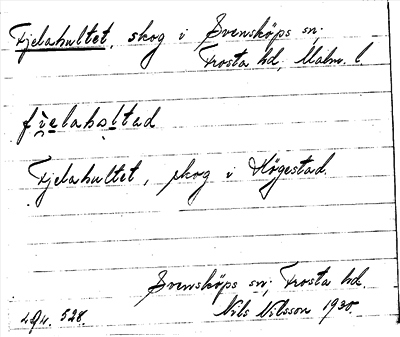 Fjelahultet, skog i Svensköps sn;
Frosta hd, Malm. l
fi̯elahɔltad
Fjelahultet, skog i Högestad.
Svensköps sn; Frosta hd.
494. 528. Nils Nilsson 1930.